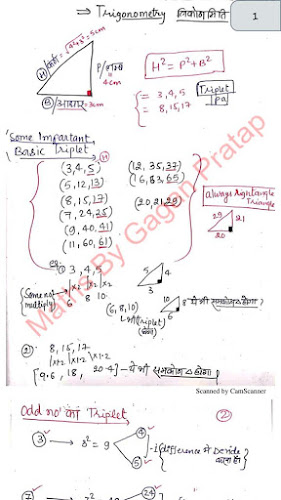 ⇒ Trigonometry त्रिकोणमिति
1
H कर्ण = √4²+3² = 5cm
P/लम्ब
4cm
B/आधार = 3cm
H² = P² + B²
= 3,4,5
= 8,15,17
Triplet
Some Important
Basic Triplet
H
(3,4,5) (12, 35, 37)
(5,12,13) (16,63,65)
(8,15,17) (20,21,29)
(7,24,25)
(9,40,41)
(11,60,61)
always Rightangle
Triangle
29 21
20
eg. ① 3, 4, 5
×2 ×2 ×2
6 8 10
{Same no multiply}
5 4
3
(6,8,10)
Triplet
10 8
6
ये भी समकोण Δ होगा
② 8, 15, 17
×1.2 ×1.2 ×1.2
[9.6, 18, 20.4] – ये भी समकोण Δ होगा
Maths By Gagan Pratap
Scanned by CamScanner
Odd no का Triplet
②
③ → 3² = 9
4
5
difference में Devide
7² = 49
24